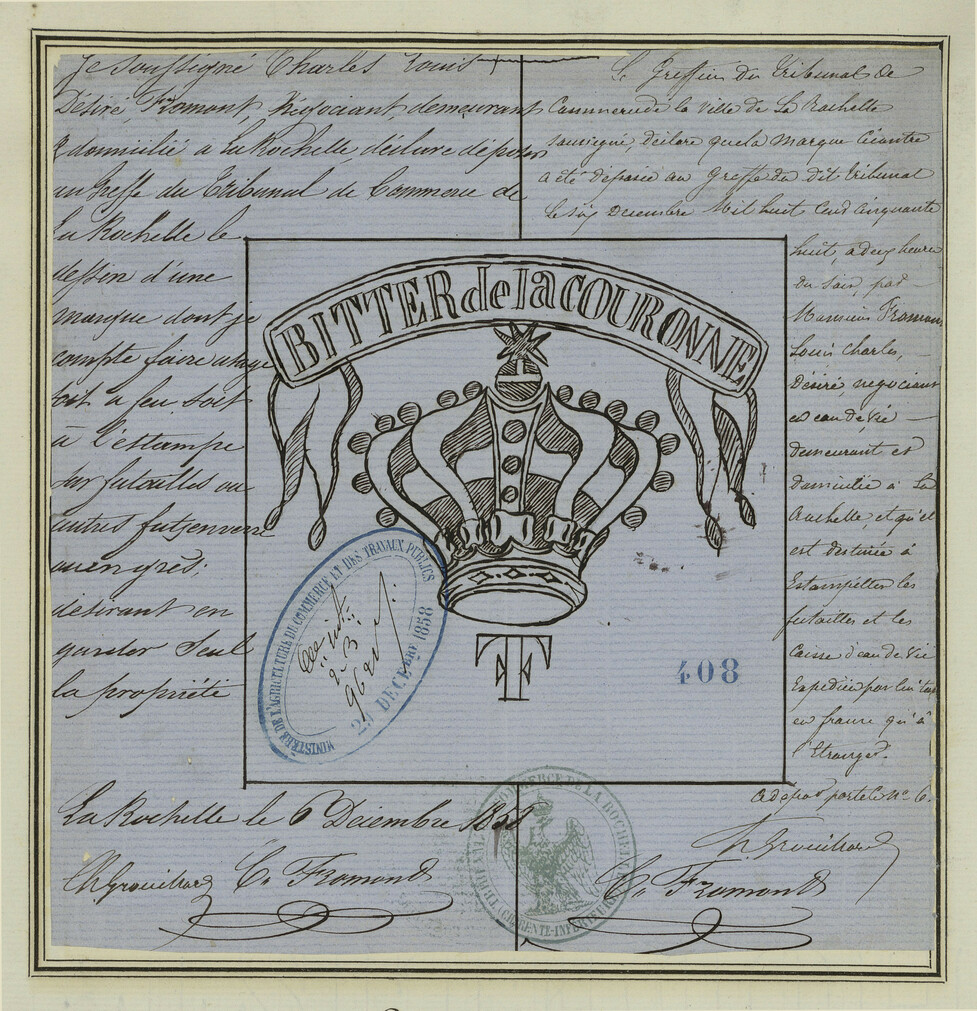 Je soussigné Charles Louis
Désiré, Fromont, Négociant, demeurant
& domicilié à La Rochelle, déclare déposer
au Greffe du Tribunal de Commerce de
La Rochelle le
dessin d'une
marque dont je
compte faire usage
soit a feu soit
à l'estampe
sur futailles ou
autres futs en verre
ou en grès;
désirant en
garder seul
la propriété
La Rochelle le 6 Décembre 1858
C. Fromont
Le Greffier du Tribunal de
Commerce de la ville de La Rochelle
soussigné, déclare que la marque ci contre
a été déposée au Greffe du dit tribunal
le six decembre Mil huit Cent cinquante
huit, a deux heures
du soir, par
Monsieur Fromont
Louis Charles,
Désiré, negociant
en eau de vie
demeurant et
domicilié à La
Rochelle, et qu'el
est destinée à
Estampiller les
futailles et les
Caisse d'eau de Vie
Expediée par lui tant
en france qu'à
l'Etranger.
Ce depot porte le No 6.
C. Fromont
BITTER de la COURONNE
MINISTÈRE DE L'AGRICULTURE DU COMMERCE ET DES TRAVAUX PUBLICS
24 DÉCEMBRE 1858
408
COMMERCE DE LA ROCHELLE
CHARENTE-INFÉRIEURE